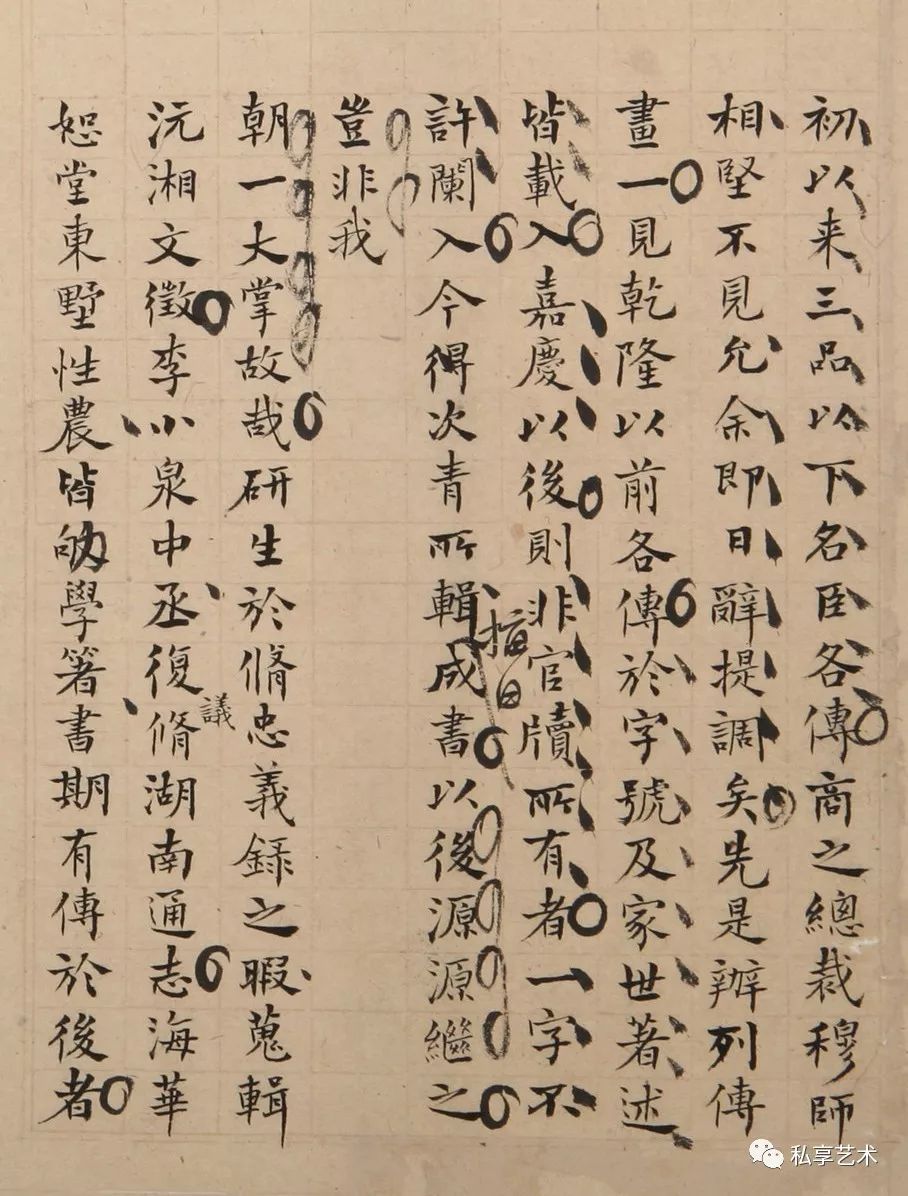 初以来三品以下名臣各傳商之總裁穆師
相堅不見允余即日辭提調矣先是辦列傳
畫一見乾隆以前各傳於字號及家世著述
皆載入嘉慶以後則非官牘所有者一字不
許闌入今得次青所輯成書以後源源繼之
指日
豈非我
朝一大掌故哉研生於脩忠義錄之暇蒐輯
沅湘文徵李小泉中丞復脩湖南通志海華
議
恕堂東墅性農皆劬學著書期有傳於後者
私享艺术